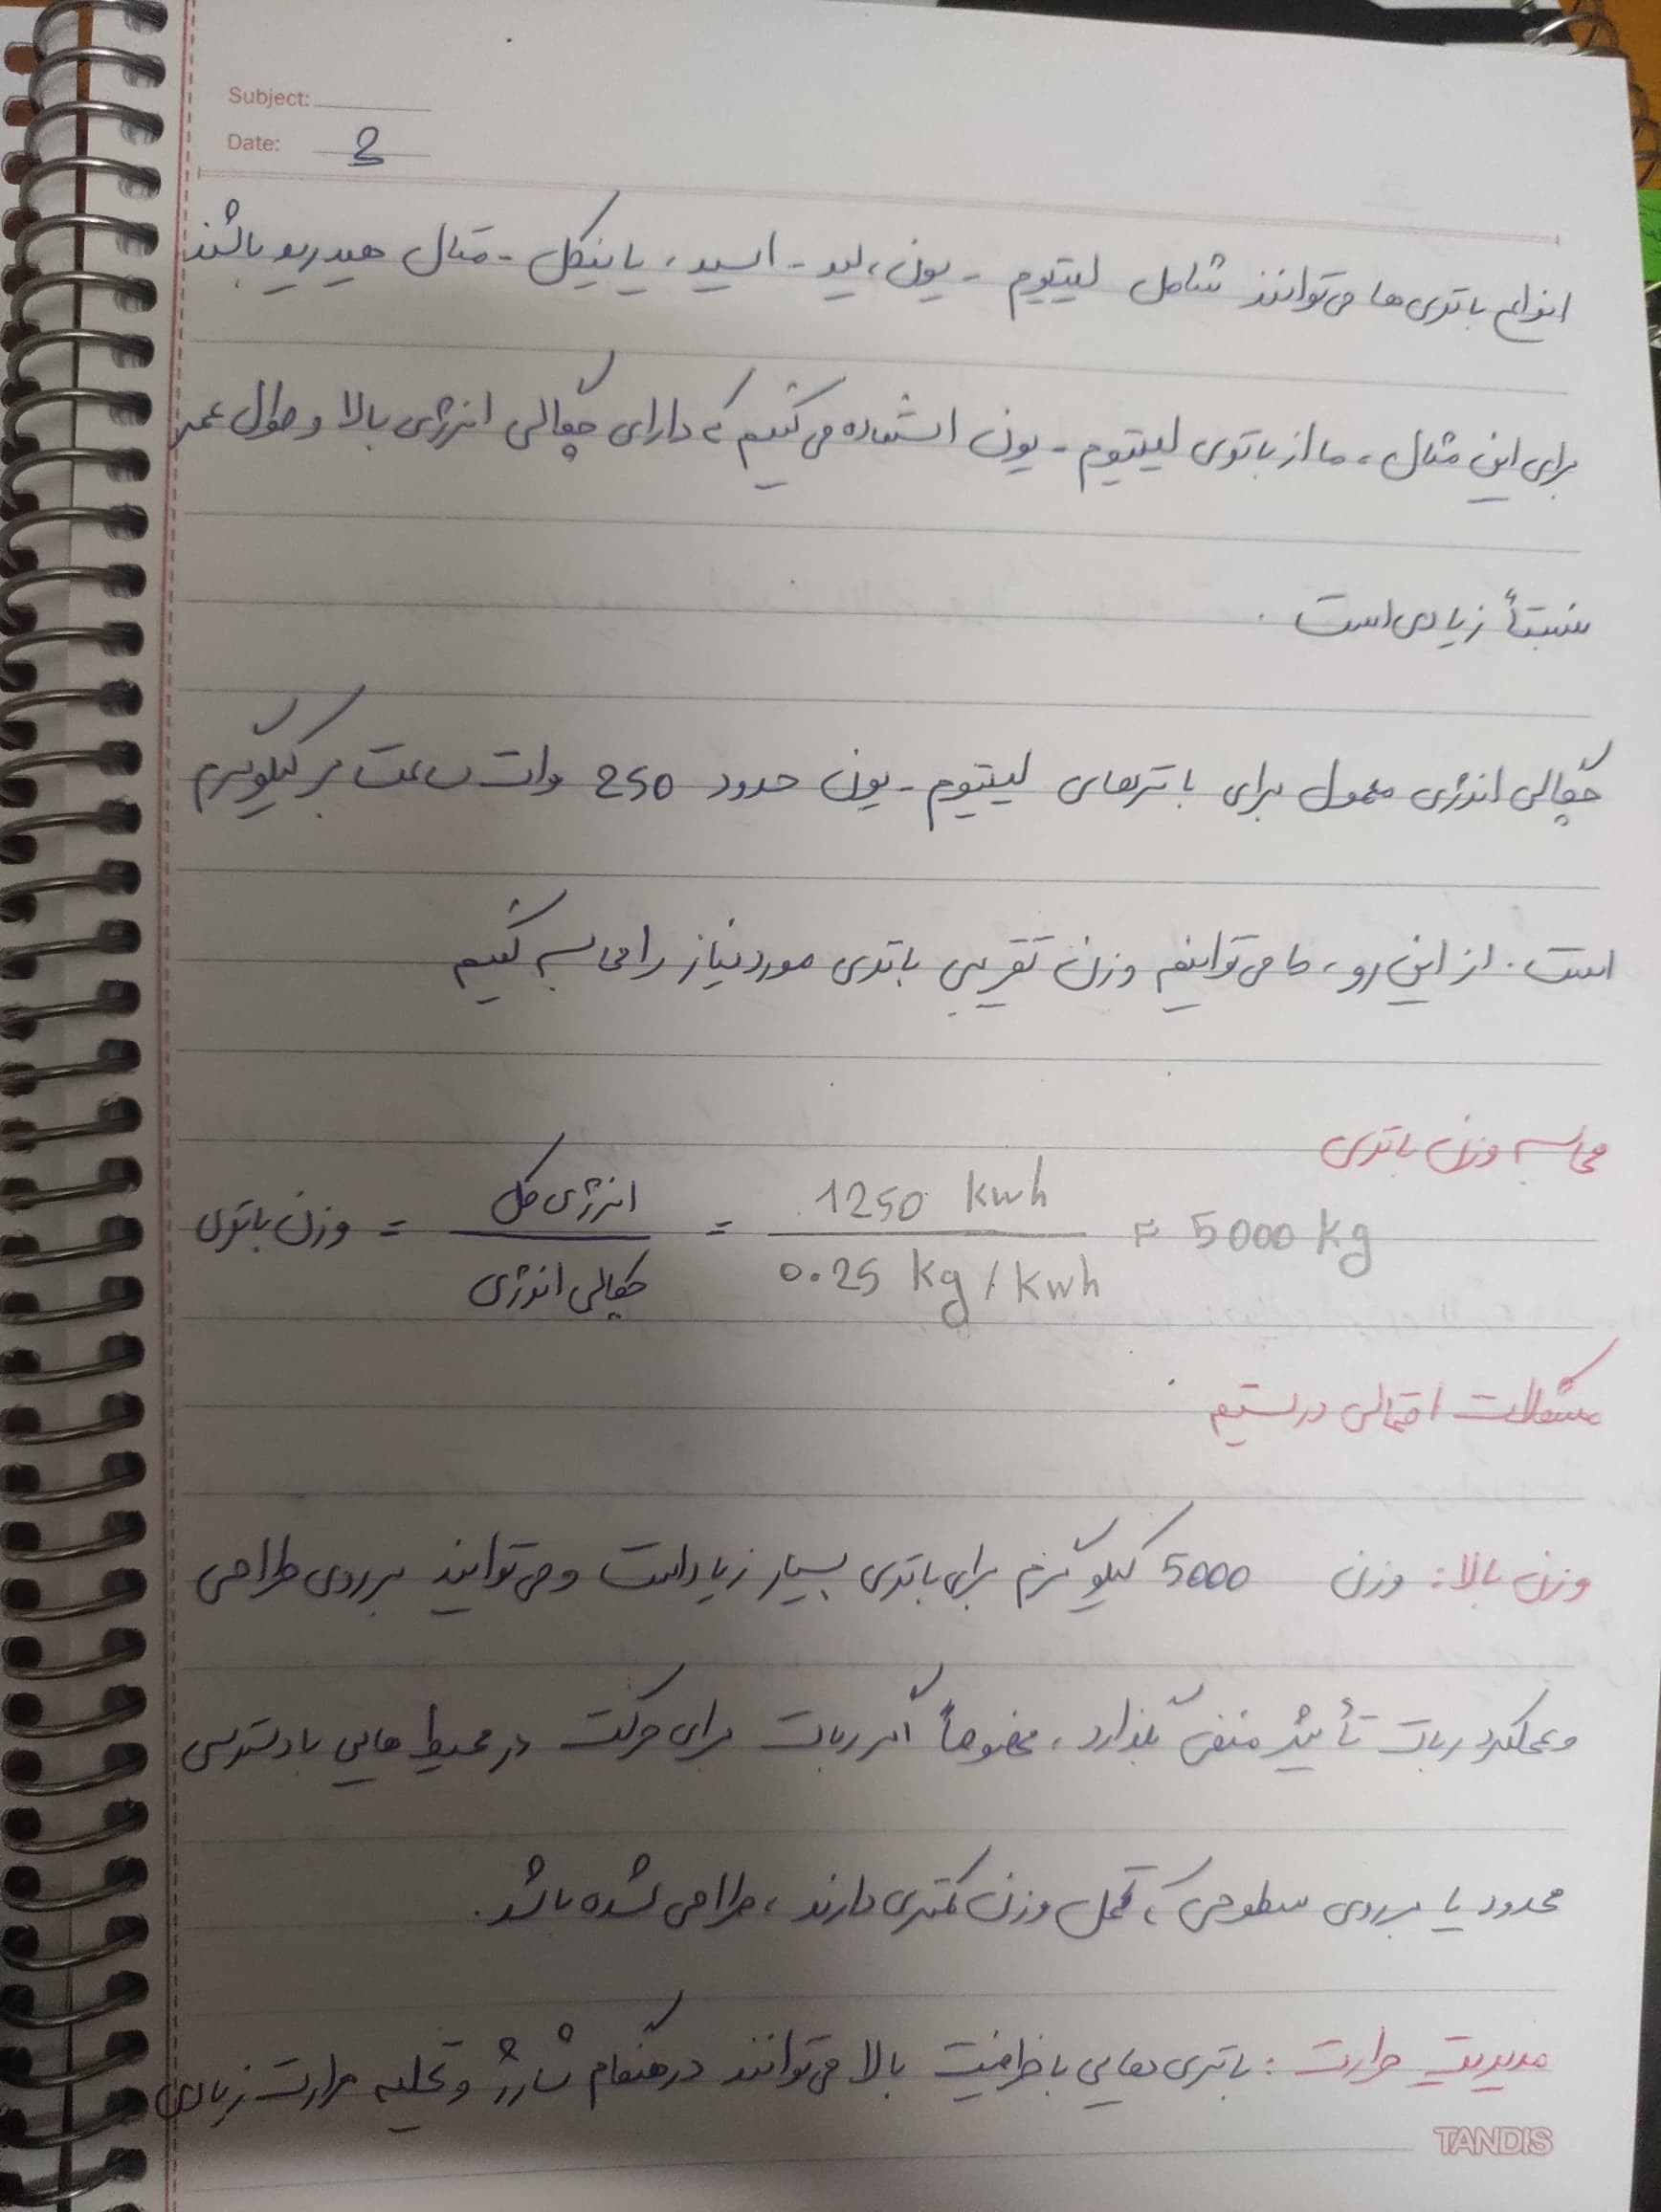 Subject:
Date: 2
انواع باتری ها می توانند شامل لیتیوم - یون، لید - اسید، یا نیکل - متال هیدرید باشند
برای این مثال، ما از باتری لیتیوم - یون استفاده می کنیم که دارای چگالی انرژی بالا و طول عمر
نسبتاً زیادی است.
چگالی انرژی معمول برای باتریهای لیتیوم - یون حدود 250 وات ساعت بر کیلوگرم
است. از این رو، ما می توانیم وزن تقریبی باتری مورد نیاز را محاسبه کنیم
محاسبه وزن باتری
وزن باتری = انرژی کل / چگالی انرژی = 1250 kwh / 0.25 kg/kwh = 5000 kg
مشکلات احتمالی در سیستم
وزن بالا: وزن 5000 کیلوگرم برای باتری بسیار زیاد است و می توانید بر روی طراحی
و عملکرد ربات تأثیر منفی بگذارد، مخصوصاً اگر ربات برای حرکت در محیط هایی با دسترسی
محدود یا بر روی سطوحی که تحمل وزن کمتری دارند، طراحی شده باشد.
مدیریت حرارت: باتری هایی با ظرفیت بالا می توانند در هنگام شارژ و تخلیه حرارت زیادی
TANDIS